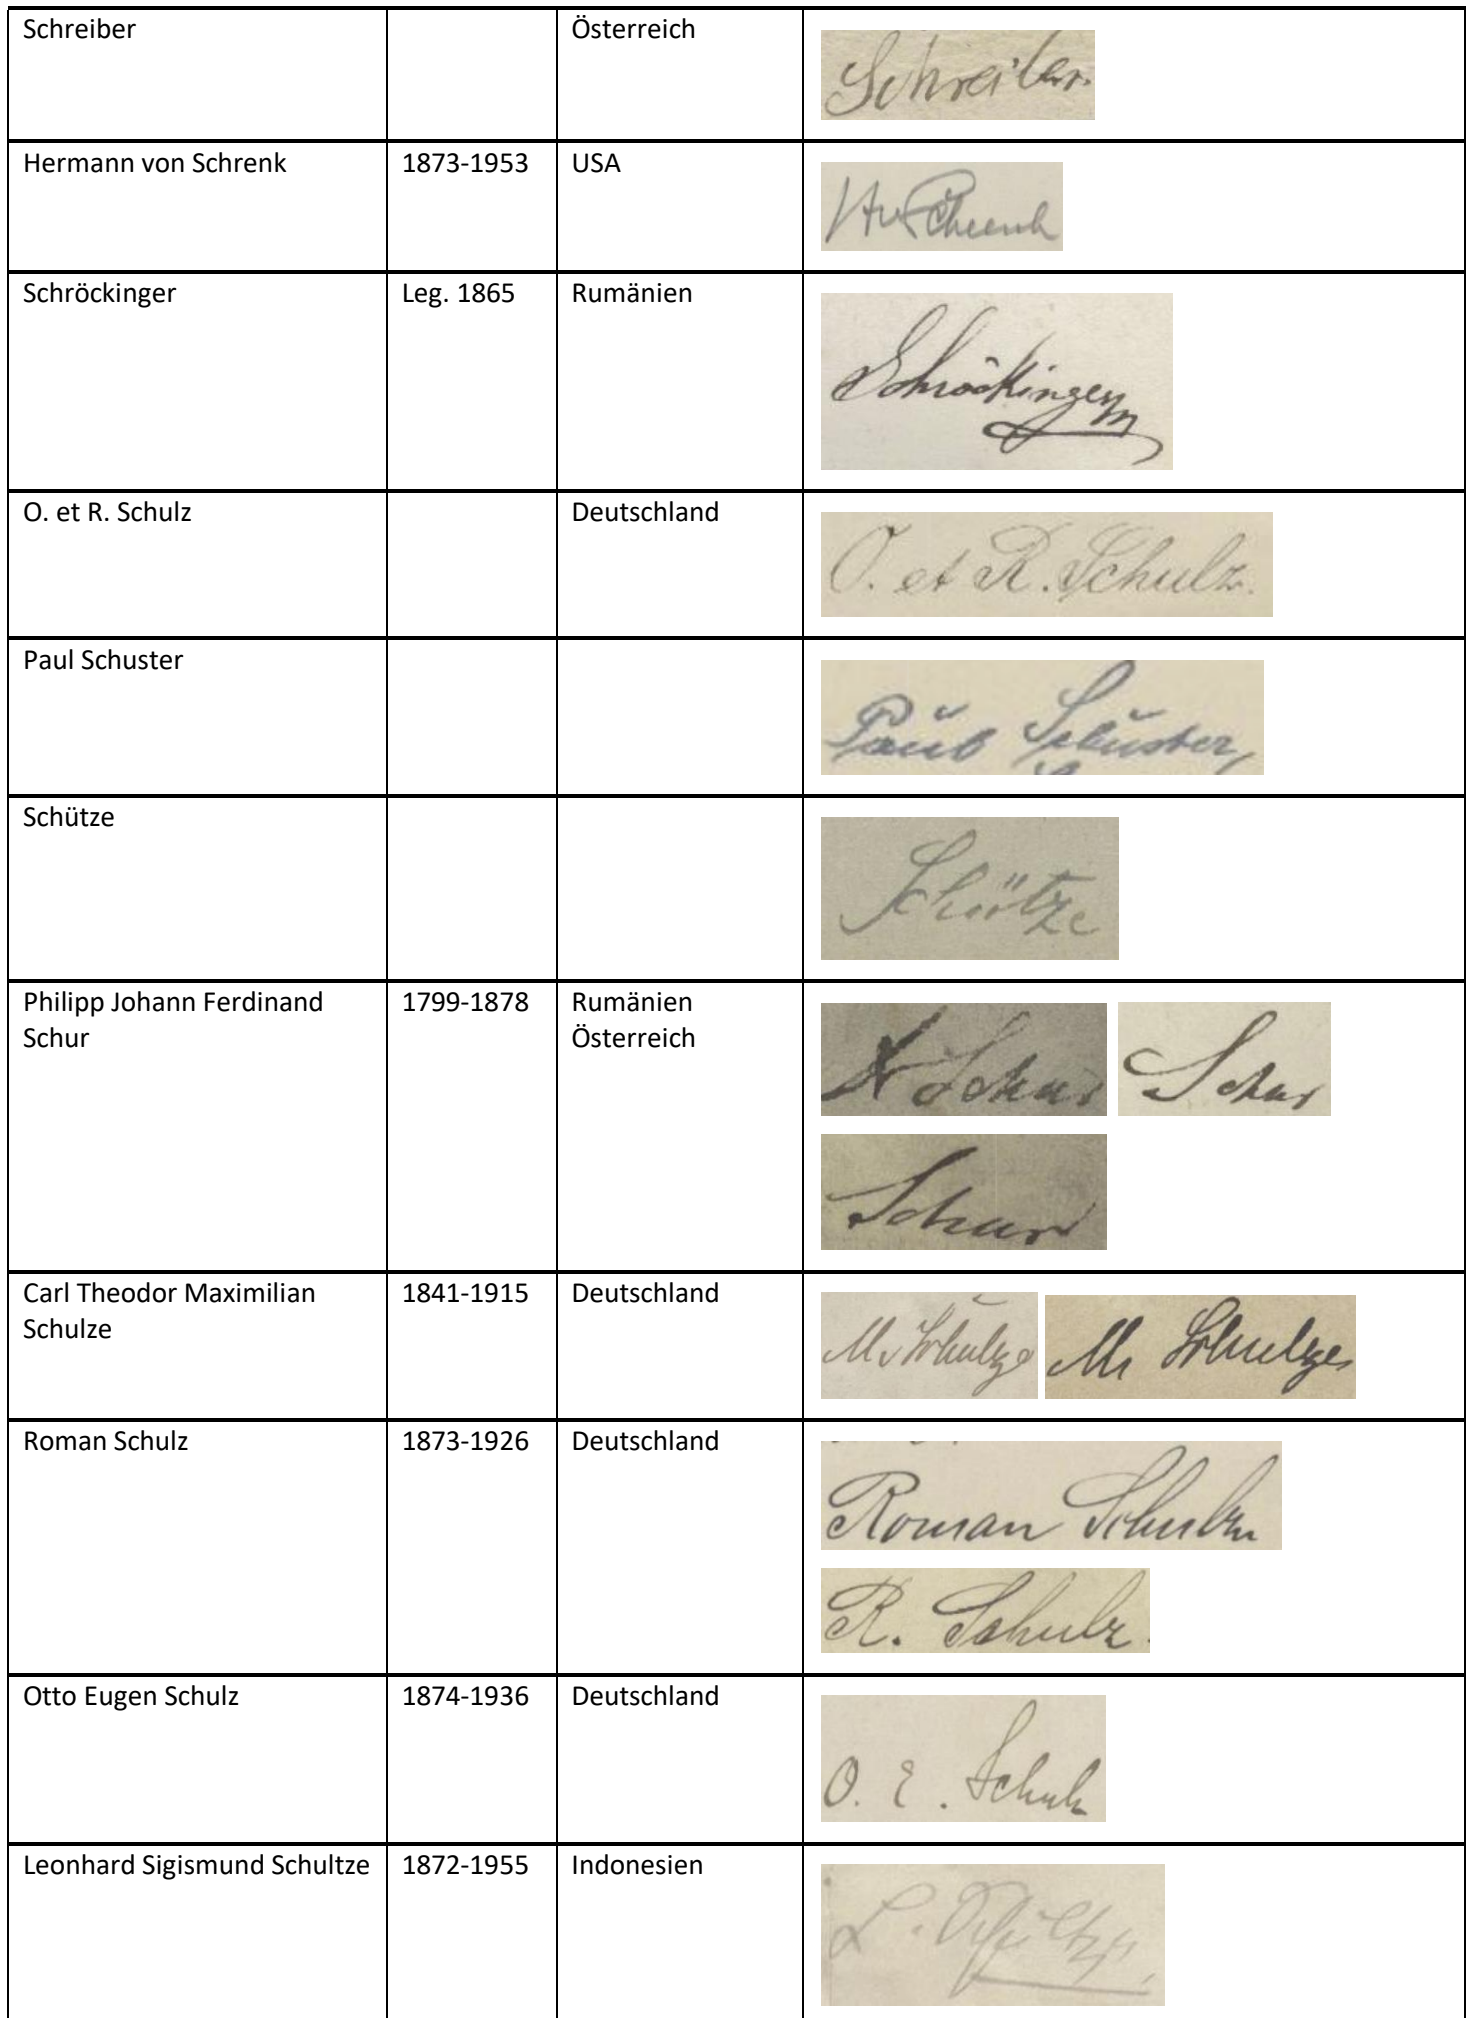 Schreiber Österreich Schreiber.
Hermann von Schrenk 1873-1953 USA HvSchrenk
Schröckinger Leg. 1865 Rumänien Schröckinger
O. et R. Schulz Deutschland O. et R. Schulz.
Paul Schuster Paul Schuster,
Schütze Schütze
Philipp Johann Ferdinand 1799-1878 Rumänien Schur Schur
Schur Österreich
Schur
Carl Theodor Maximilian 1841-1915 Deutschland M. Schulze M. Schulze
Schulze
Roman Schulz 1873-1926 Deutschland Roman Schulz
R. Schulz.
Otto Eugen Schulz 1874-1936 Deutschland O. E. Schulz
Leonhard Sigismund Schultze 1872-1955 Indonesien L. Schultze